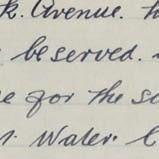 k. Avenue.
be served.
e for the s
t. Water.